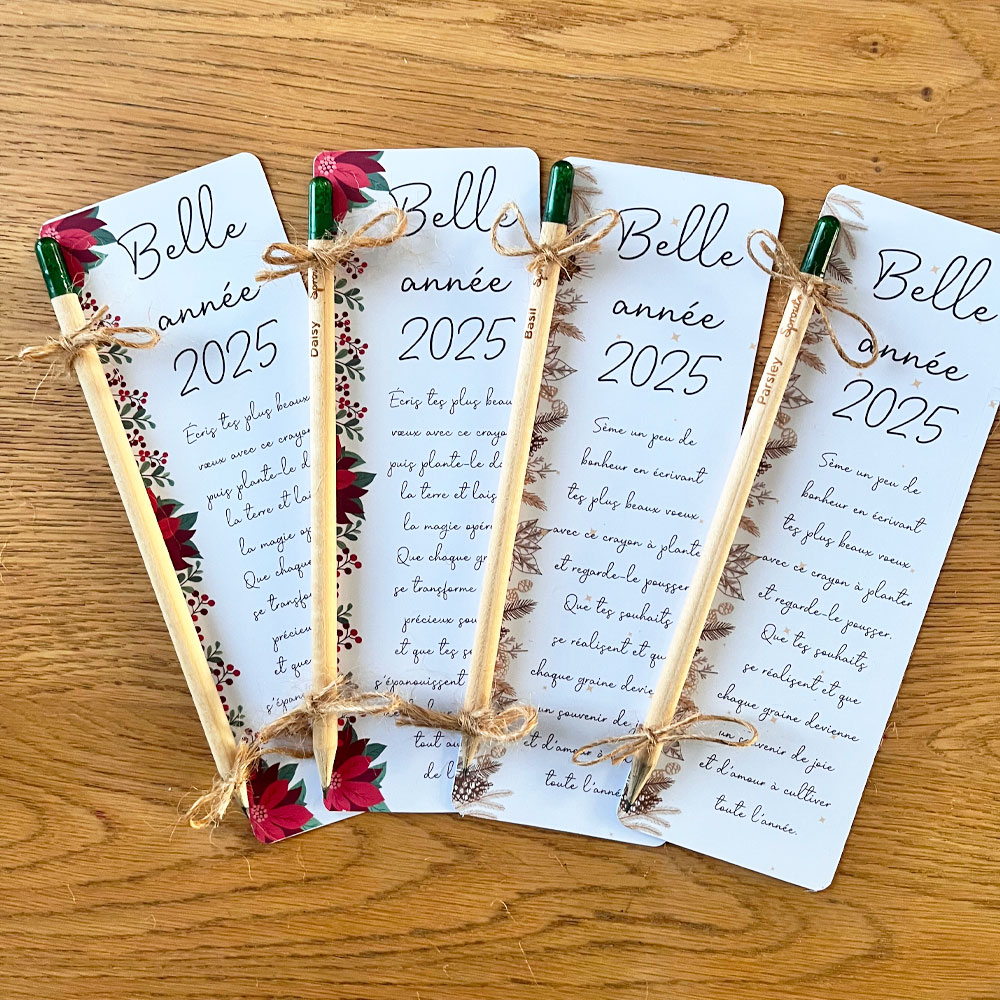 Belle
année
2025
Écris tes plus beaux
vœux avec ce crayon
puis plante-le d
la terre et lais
la magie opér
Que chaque
se transfo
précieu
et que
s'épanou
Daisy Sprout
Belle
année
2025
Écris tes plus beau
vœux avec ce crayo
puis plante-le da
la terre et lais
la magie opére
Que chaque gr
se transforme
précieux sou
et que tes s
s'épanouissent
tout au
de l
Basil
Belle
année
2025
Sème un peu de
bonheur en écrivant
tes plus beaux voeux
avec ce crayon à plante
et regarde-le pousser
Que tes souhaits
se réalisent et qu
chaque graine devie
un souvenir de jo
et d'amour à
toute l'anné
Parsley Sprout
Belle
année
2025
Sème un peu de
bonheur en écrivant
tes plus beaux voeux
avec ce crayon à planter
et regarde-le pousser.
Que tes souhaits
se réalisent et que
chaque graine devienne
un souvenir de joie
et d'amour à cultiver
toute l'année.